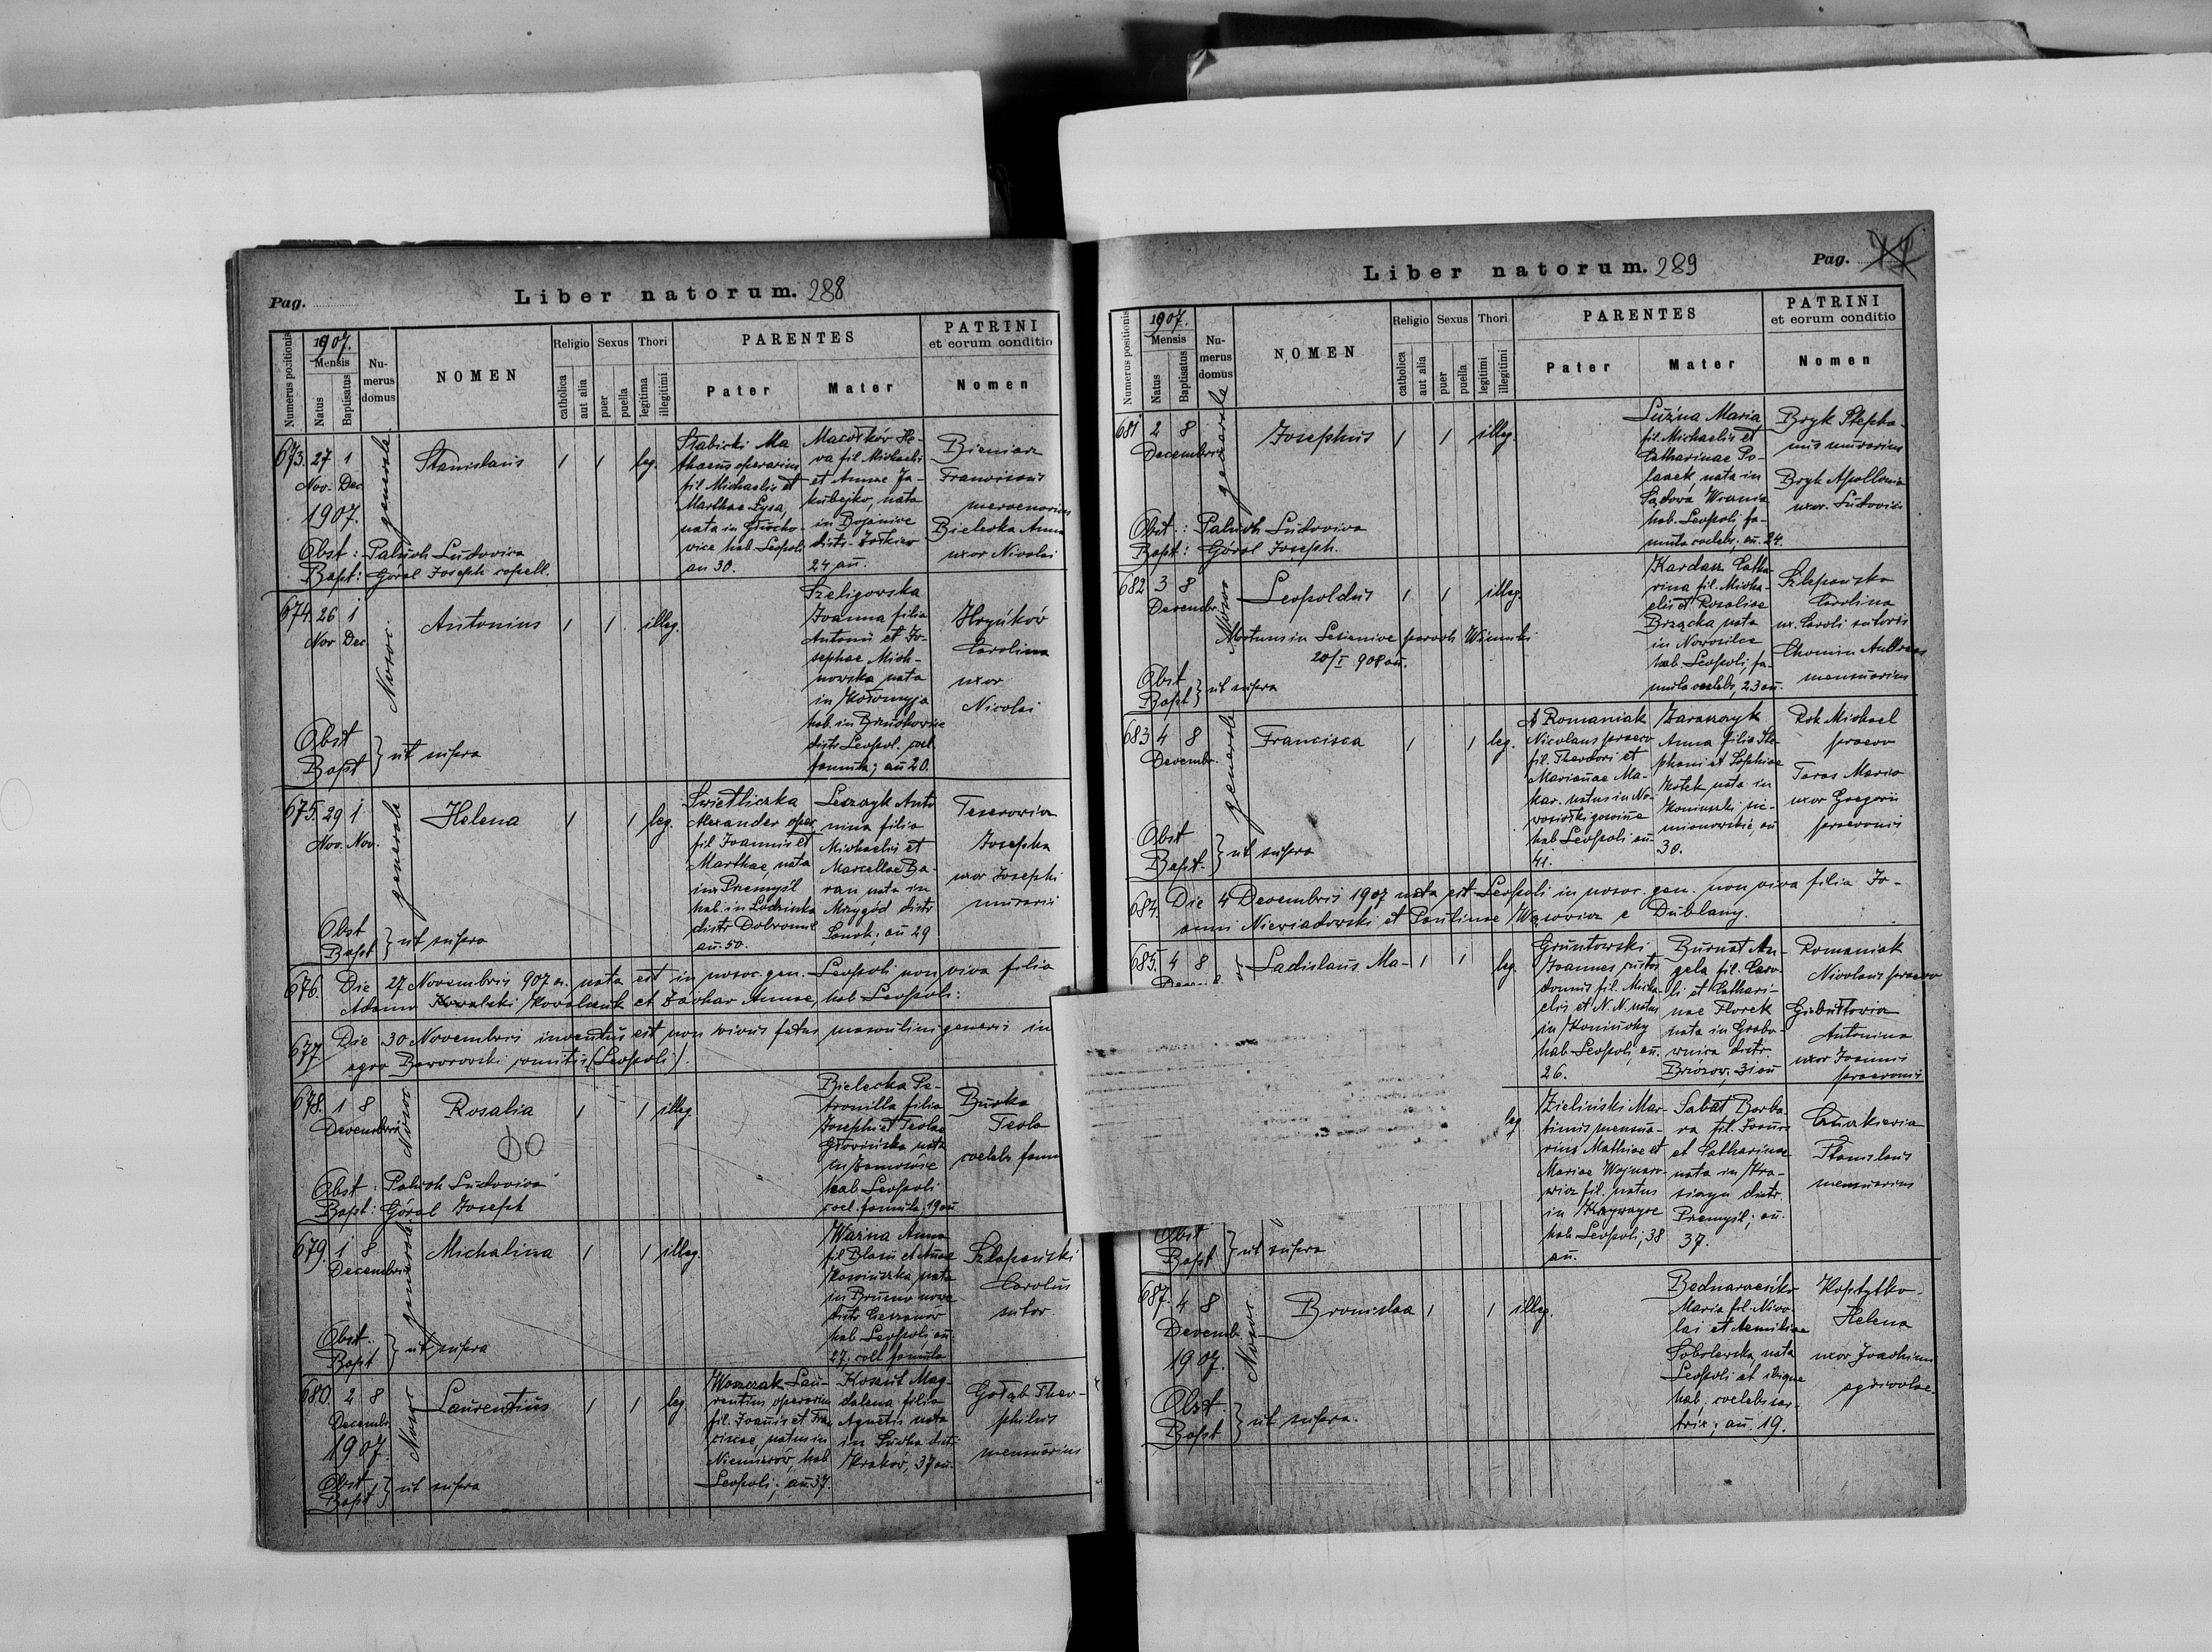 Pag.
Liber natorum. 288
Numerus positionis
1907.
Mensis
Natus
Baptisatus
Nu-
merus
domus
NOMEN
Religio
catholica
aut alia
Sexus
puer
puella
Thori
legitima
illegitimi
PARENTES
Pater
Mater
PATRINI
et eorum conditio
Nomen
673. 27 1
Nov. Dec
1907.
generale.
Stanislaus
1 1 leg.
Słabicki Ma
thaeus operarius
fil Michaelis et
Marthae Łysa,
nata in
vice hab Leopoli
an 30.
Macołków He-
va fil Michaeli
et Annae Ja-
kubejko, nata
in Bojanice
distr. Żołkiew
24 an.
Bieniasz
Franciscus
mercenarius
Bielecka Anna
uxor Nicolai
Obst: Paluch Ludovica
Bapt: Góral Joseph copell.
674. 26 1
Nov Dec
Nosoc.
Antonius
1 1 illeg.
Szeligowska
Joanna filia
Antonii et Jo-
sephae Mich-
nowska nata
in Kołomyja
hab in Brzuchowice
distr Leopol. coel.
famula; an 20.
Hryńków
Carolina
uxor
Nicolai
Obst
Bapt } ut supra
675. 29 1
Nov. Nov.
generale
Helena
1 1 leg.
Swietliczka
Alexander oper
fil Joannis et
Marthae, nata
in Przemyśl
hab. in Łodzinka
distr Dobromil
an. 50.
Leszczyk Anto
nina filia
Michaelis et
Marcellae Ba-
ran, nata in
Mrzygód distr
Sanok; an 29
Teserowicz
Josepha
uxor Josephi
murarii
Obst
Bapt } ut supra
676. Die 27 Novembris 907 a. nata est in nosoc. gen. Leopoli non viva filia
Adamo Kowalski Kowalczuk et Zachar Annae, hab Leopoli:
677. Die 30 Novembris inventus est non vivus fetus masculini generis in
agro Baworowski comitis (Leopoli).
678. 1 8
Decembris
Nosoc
Rosalia
1 1 illeg.
Bielecka Pe-
tronilla filia
Josephi et Teclae
nata
in
hab Leopoli
coel. famula; 19 an
Burka
Tecla
coelebs fam
Obst: Paluch Ludovica
Bapt: Góral Joseph
679. 1 8
Decembris
generale.
Michalina
1 1 illeg.
Ważna Anna
fil Blasii et Annae
nata
in Brusno nowe
distr Cieszanów
hab. Leopoli an.
27; coel famula
Szlapowski
Carolus
sutor.
Obst.
Bapt } ut supra
680. 2 8
Decembr.
1907.
Nosoc
Laurentius
1 1 leg.
Woszczak Lau-
rentius operarius
fil. Joannis et Fran
ciscae, natus in
Niemirów, hab
Leopoli; an. 37.
Koszut Mag-
dalena filia
Agnetis nata
in Sucha distr
Kraków, 37 an.
Gołąb Theo-
philus
mensuarius
Obst
Bapt } ut supra
Liber natorum. 289
Pag.
Numerus positionis
1907.
Mensis
Natus
Baptisatus
Nu-
merus
domus
NOMEN
Religio
catholica
aut alia
Sexus
puer
puella
Thori
legitimi
illegitimi
PARENTES
Pater
Mater
PATRINI
et eorum conditio
Nomen
681 2 8
Decembris
generale
Josephus
1 1 illeg.
Luźna Maria
fil. Michaelis et
Catharinae Po-
laaek, nata in
Sądowa Wisznia
hab. Leopoli, fa-
mula coelebs; an. 24.
Bryk Stepha-
nus murarius
Bryk Apollonia
uxor. Ludovici
Obst.: Paluch Ludovica
Bapt: Góral Joseph.
682 3 8
Decembr.
Nosoc
Leopoldus
1 1 illeg.
Kardasz Catha-
rina fil. Micha-
elis et Rosaliae
Brzącka nata
in Nowosilce
hab. Leopoli; fa-
mula coelebs, 23 an.
Szlapowska
Carolina
ux. Caroli sutoris
Chomin Andreas
mensuarius
Mortuus in Lesienice paroch Winniki
20/I 908 an.
Obst
Bapt } ut supra
683 4 8
Decembr.
generale
Francisca
1 1 leg.
Romaniak
Nicolaus praeco
fil. Theodori et
Mariannae Ma-
kar. natus in No-
wosiołki gościnne
hab Leopoli an
41.
Zaraszczyk
Anna filia Ste-
phani et Sophiae
Kotek nata in
Koniuszki sie-
mianowskie, an
30.
Rok Michael
praeco
Taras Maria
uxor Gregorii
praeconis
Obst
Bapt. } ut supra
684. Die 4 Decembris 1907 nata est Leopoli in nosoc. gen. non viva filia Jo-
anni Niewiadowski et Paulinae Wąsowicz e Dublany.
685. 4 8
Ladislaus Ma-
1 1 leg.
Gruntowski
Joannes custos
domus fil. Micha-
elis et N. N. natus
in Koniuchy
hab. Leopoli, an.
26.
Burnat An-
gela fil. Caro-
li et Cathari-
nae Florek
nata in Grabo-
wnica distr.
Brzozow, 31 an
Romaniak
Nicolaus praeco
Antonina
uxor Joannis
praeconis
leg
Zieliński Mar-
tinus mensua-
rius Mathiae et
Mariae Wojnaro-
wicz fil. natus
in Krzywcze
hab Leopoli; 38
an.
Sabat Barba-
ra fil. Joannis
et Catharinae
nata in Kra-
siczyn distr.
Przemyśl; an.
37.
Stanislaus
mensuarius
Obst
Bapt } ut supra
687. 4 8
Decemb.
1907.
Nosoc.
Bronislaa
1 1 illeg.
Maria fil. Nico-
lai et Aemiliae
Sobolewska, nata
Leopoli et ibique
hab; coelebs sar-
trix; an. 19.
Koptytko
Helena
uxor Joachimi
agricolae.
Obst
Bapt } ut supra.